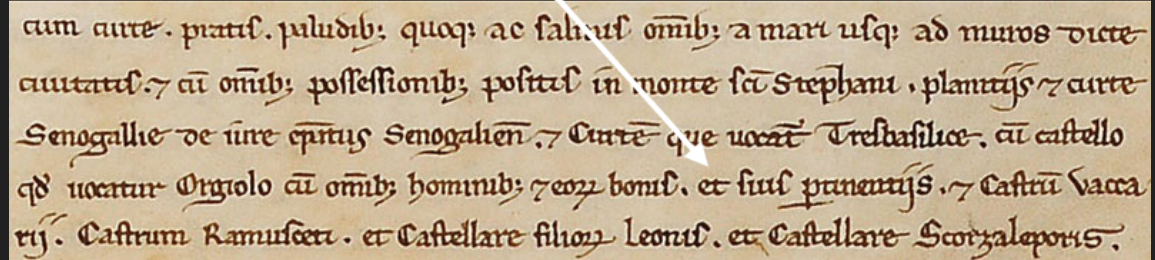 cum curte . pratiſ . paludib; quoq; ac ſaliniſ om̄ib; a mari uſq; ad muros dicte
ciuitatiſ . ⁊ cū om̄ib; poſſeſſionib; poſitiſ in monte ſc̄i Stephani . planitijs ⁊ curte
Senogallie de iure ep̄itus Senogalien̄ . ⁊ Curtē que uocat̄ Treſbaſilice . cū caſtello
qđ uocatur Orgiolo cū om̄ib; hominib; ⁊ eoꝝ boniſ . et ſuiſ ꝑtinentijs . ⁊ Caſtrū Vacca
rij . Caſtrum Ramuſceti . et Caſtellare filioꝝ Leoniſ . et Caſtellare Scorzaleporis .